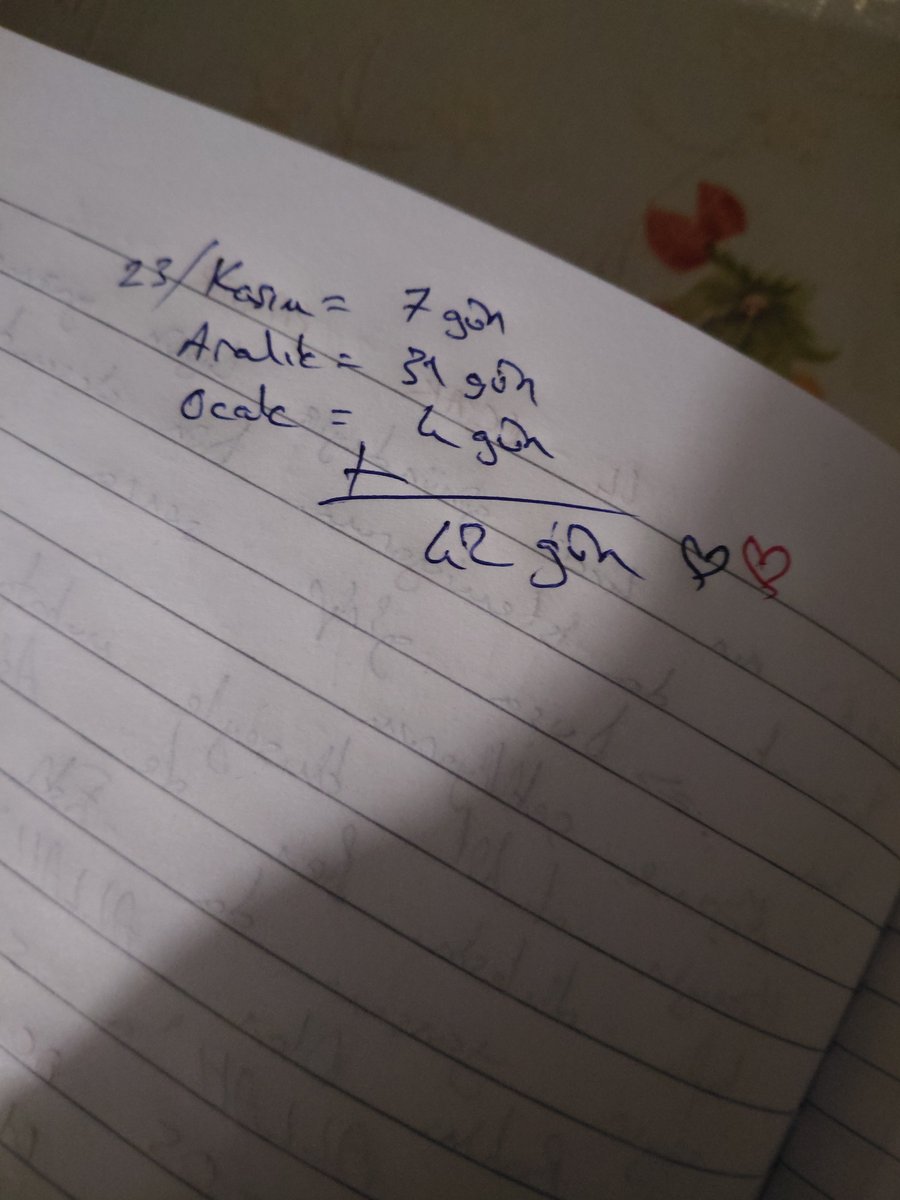 23/Kasım = 7 gün
Aralık = 31 gün
Ocak = 4 gün
+
42 gün